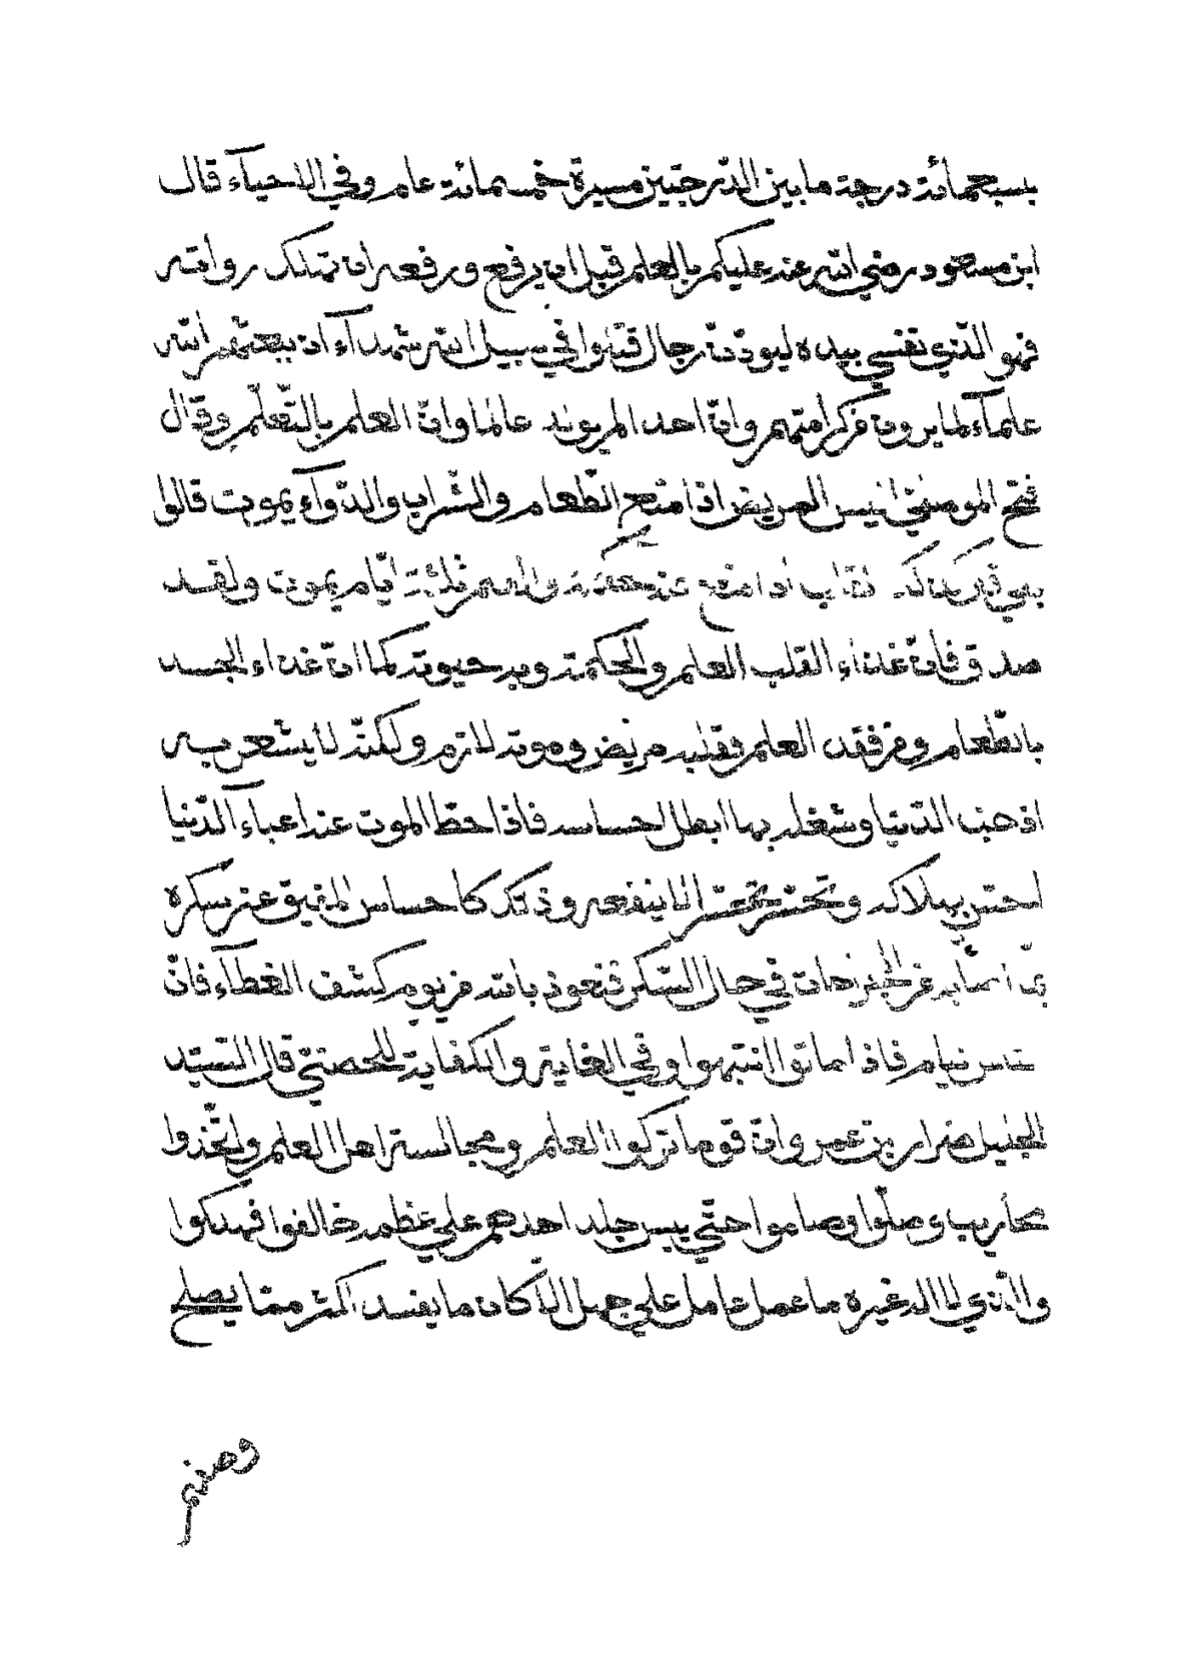 بسبعمائة درجة ما بين الدّرجتين مسيرة خمسمائة عام وفي الاحياء قال
ابن مسعود رضي الله عنه عليكم بالعلم قبل ان يرفع ورفعه ان تهلك رواته
فهو الذي نفسي بيده ليودّنّ رجال قتلوا في سبيل الله شهدآء ان يبعثهم الله
علمآء لما يرون من كرامتهم وانّ احدا لم يولد عالما وانّ العلم بالتّعلّم وقال
فتح الموصلي اليس المريض اذا منع الطّعام والشّراب والدّوآء يموت قالوا
بلى قال كذلك القلب اذا منع عنه الحكمة والعلم ثلثة ايّام يموت ولقد
صدق فانّ غذاء القلب العلم والحكمة وبه حيوته كما انّ غذاء الجسد
بالطّعام ومن فقد العلم فقلبه مريض وموته لازم ولكنّه لا يشعر به
اذ حبّ الدّنيا وشغله بها ابطل احساسه فاذا حطّ الموت عنه اعباء الدّنيا
احسّ بهلاكه وتحسّر تحسّرا لا ينفعه وذلك كاحساس المفيق عن سكره
بما اصابه من الجراحات في حال السّكر فنعوذ بالله من يوم كشف الغطآء فانّ
النّاس نيام فاذا ماتوا انتبهوا وفي الغاية والكفاية للحصني قال السّيّد
الجليل ضرار بن عمر وانّ قوما تركوا العلم ومجالسة اهل العلم واتّخذوا
محاريب وصلّوا وصاموا حتّي يبس جلد احدهم علي عظمه خالفوا فهلكوا
والّذي لا اله غيره ما عمل عامل علي جهل الّا كان ما يفسد اكثر ممّا يصلح